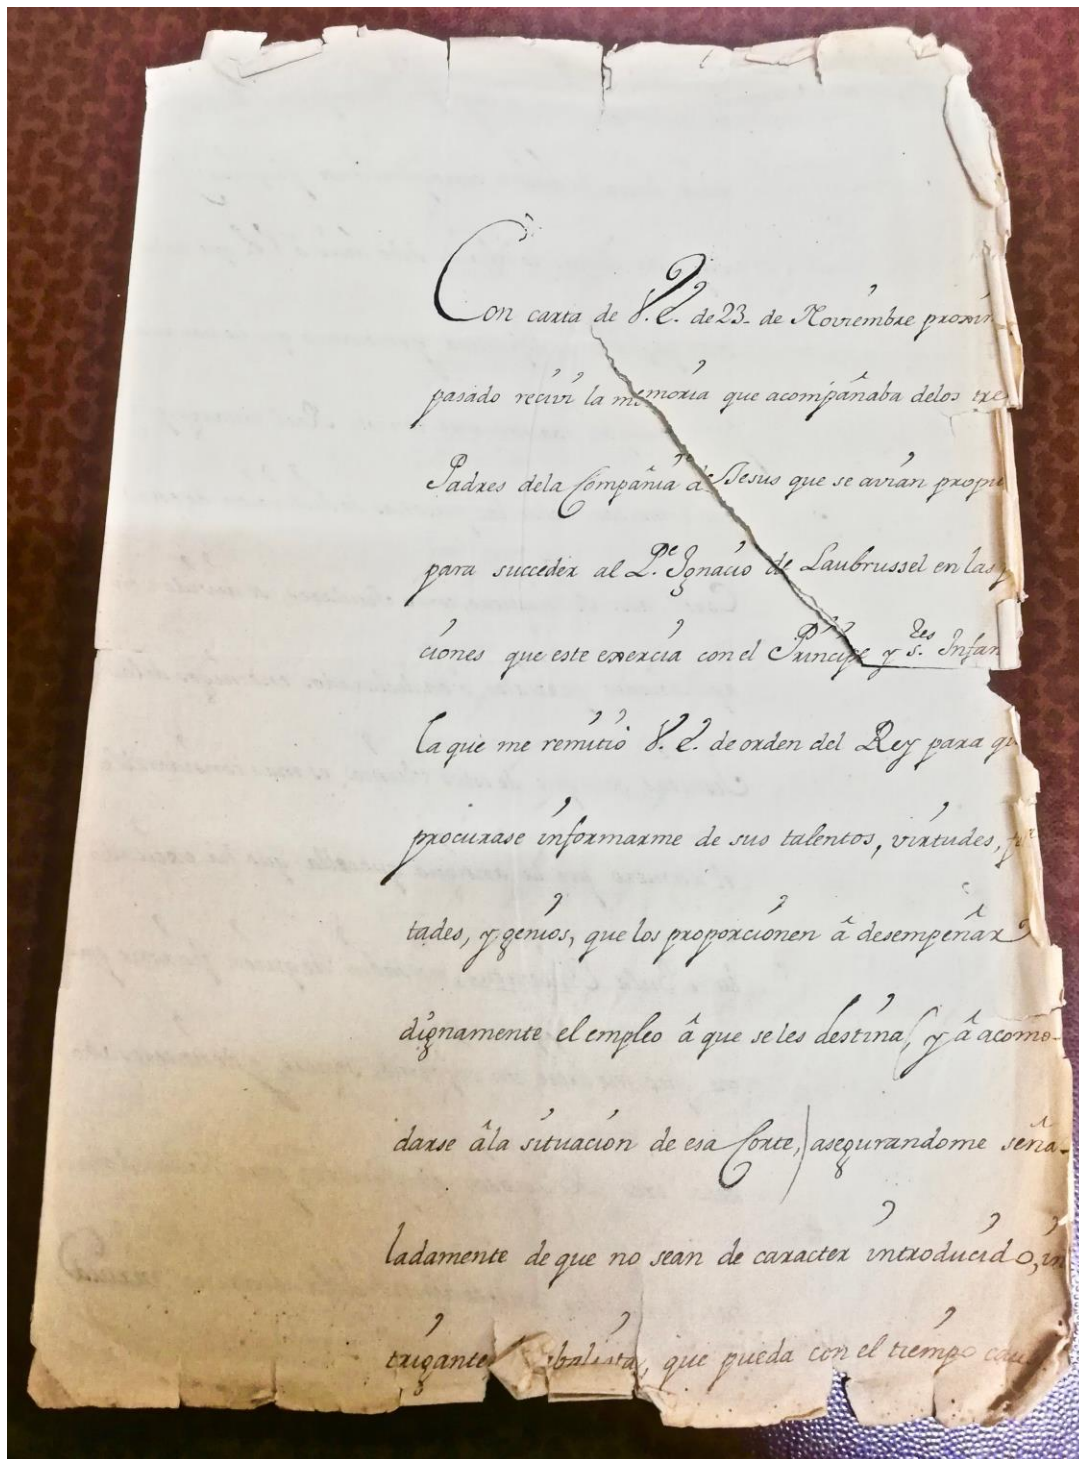 Con carta de V.E. de 23. de Noviembre proxim
pasado recivi la memoria que acompañaba delos tre
Padres dela Compañia de Jesus que se avian propu
para succeder al Pe. Ignacio de Laubrussel en las
ciones que este exercia con el Principe y Sres. Infan
la que me remitió V.E. de orden del Rey para qu
procurase informarme de sus talentos, virtudes,
tades, y genios, que los proporcionen â desempeñar
dignamente el empleo â que se les destina, y â acomo-
darse âla situacion de esa Corte, asegurandome seña-
ladamente de que no sean de caracter introducido, in
trigante balista, que pueda con el tiempo cau